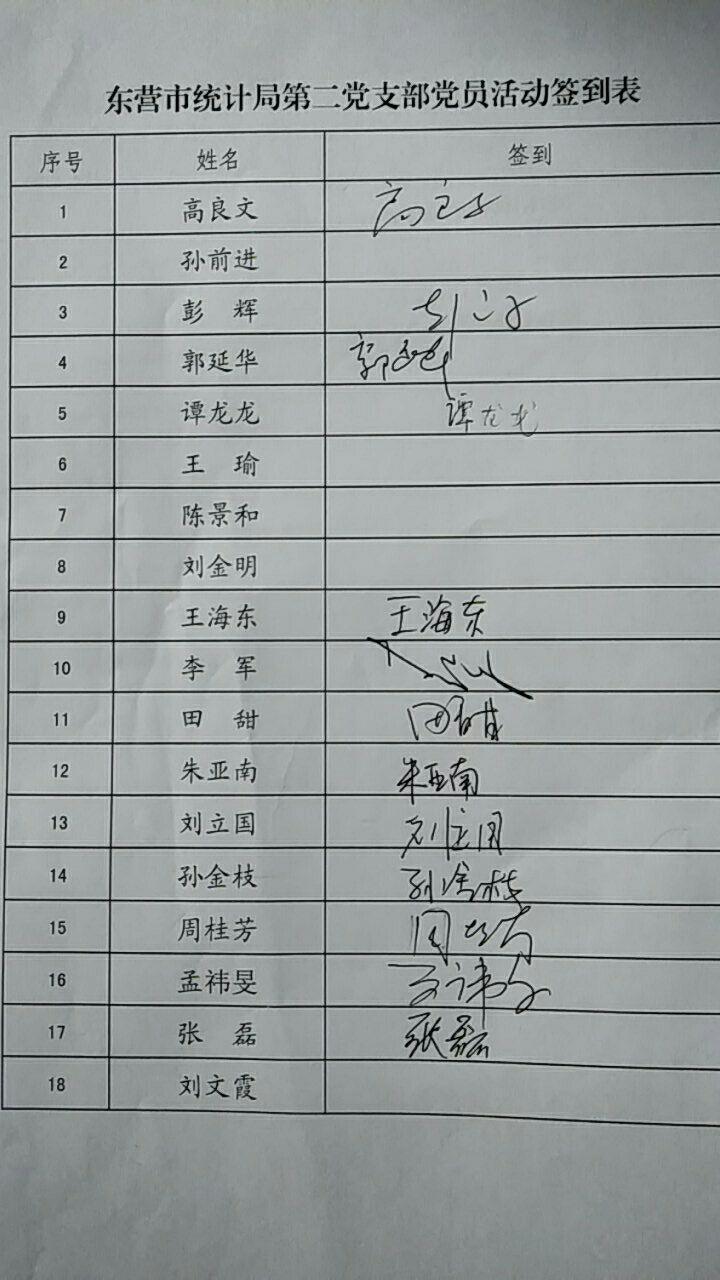 东营市统计局第二党支部党员活动签到表
序号 姓名 签到
1 高良文 高良文
2 孙前进
3 彭 辉
4 郭延华 郭延华
5 谭龙龙 谭龙龙
6 王 瑜
7 陈景和
8 刘金明
9 王海东 王海东
10 李 军
11 田 甜 田甜
12 朱亚南 朱亚南
13 刘立国 刘立国
14 孙金枝 孙金枝
15 周桂芳 周桂芳
16 孟祎旻
17 张 磊 张磊
18 刘文霞